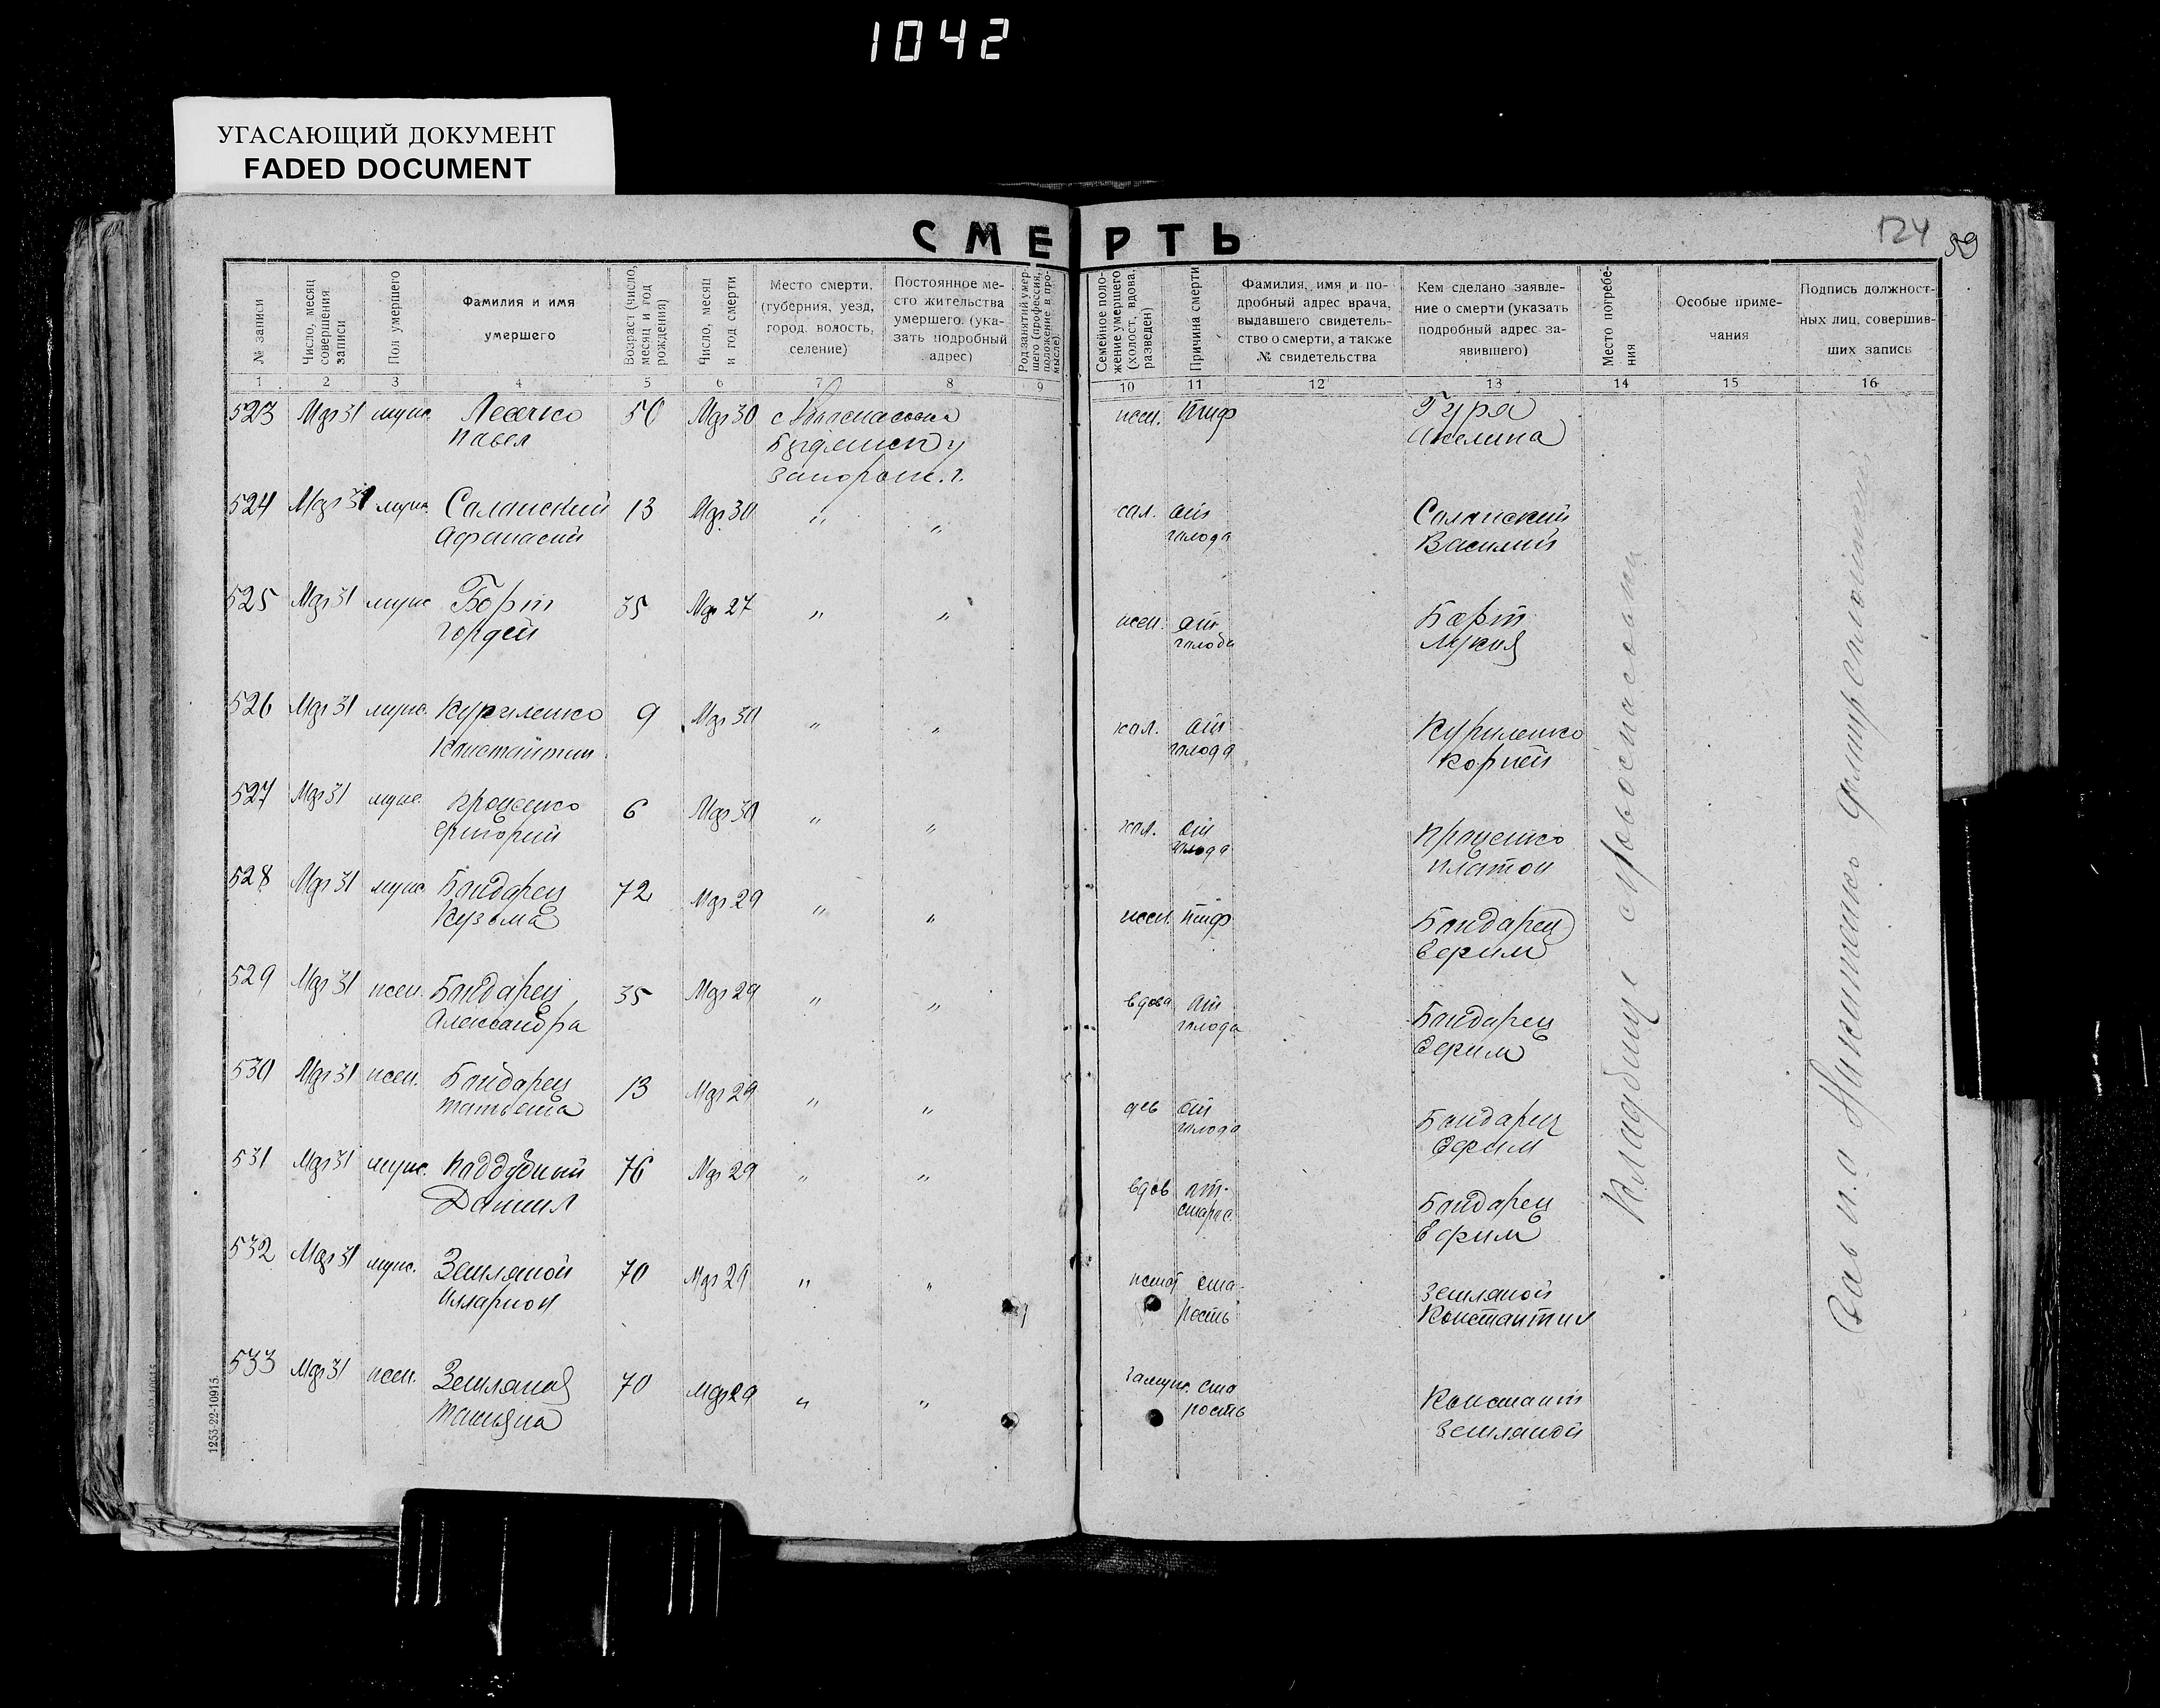 1042
УГАСАЮЩИЙ ДОКУМЕНТ
FADED DOCUMENT
СМЕРТЬ
124 59
№ записи
Число, месяц совершения записи
Пол умершего
Фамилия и имя умершего
Возраст (число, месяц и год рождения)
Число, месяц и год смерти
Место смерти, (губерния, уезд, город, волость, селение)
Постоянное место жительства умершего (указать подробный адрес)
Род занятий умершего (профессия, положение в промысле)
Семейное положение умершего (холост, вдова, разведен)
Причина смерти
Фамилия, имя и подробный адрес врача, выдавшего свидетельство о смерти, а также № свидетельства
Кем сделано заявление о смерти (указать подробный адрес заявившего)
Место погребения
Особые примечания
Подпись должностных лиц, совершивших запись
1 2 3 4 5 6 7 8 9 10 11 12 13 14 15 16
523 Мая 31 муж. Павел 50 Мая 30 жен. тиф Гура Акелина
Запорож. г.
524 Мая 31 муж. Саланский Афанасий 13 Мая 30 " " хол. от голода Саланский Василий
525 Мая 31 муж Борт Гордей 35 Мая 27 " " жен. от голода Борт Лукия
526 Мая 31 муж. Куриленко Константин 9 Мая 30 " " хол. от голода Куриленко Корней
527 Мая 31 муж. Проценко Григорий 6 Мая 30 " " хол. от голода Проценко Платон
528 Мая 31 муж. Бондарец Кузьма 72 Мая 29 " " жен. тиф Бондарец Ефим
529 Мая 31 жен. Бондарец Александра 35 Мая 29 " " вдова от голода Бондарец Ефим
530 Мая 31 жен. Бондарец Татьяна 13 Мая 29 " " дев от голода Бондарец Ефим
531 Мая 31 муж. Поддубный Даниил 76 Мая 29 " " вдов от старос. Бондарец Ефим
532 Мая 31 муж. Земляной Илларион 70 Мая 29 " " старость Земляной Константин
533 Мая 31 жен. Земляная Татьяна 70 Мая 29 " " замуж. старость Констант Земляной
Кладбище
1253-22-10915.